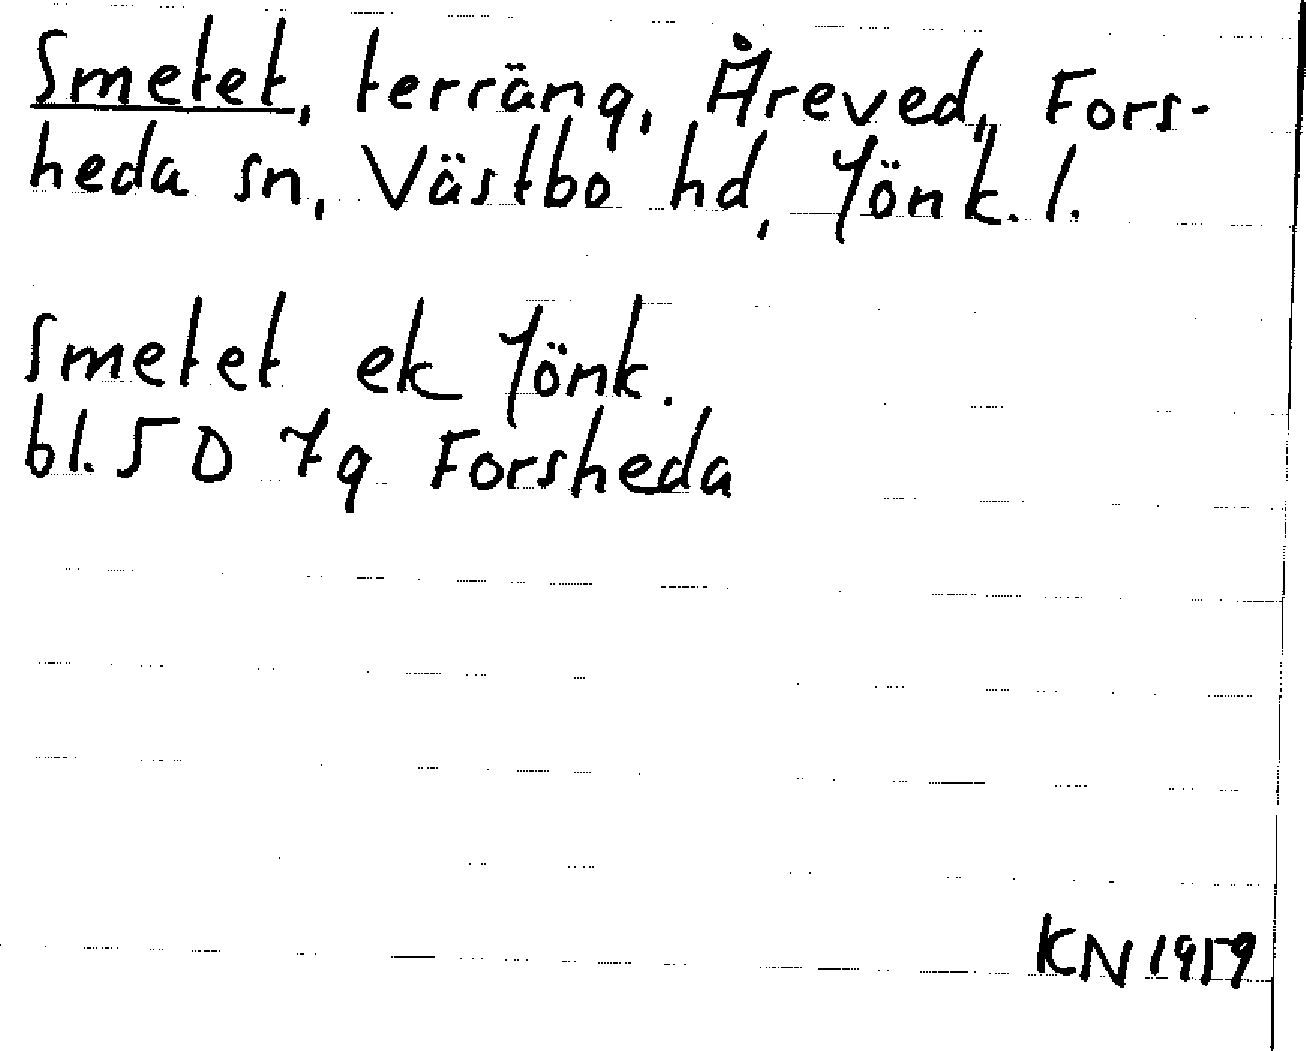 Smetet, terräng, Åreved, Fors-
heda sn, Västbo hd, Jönk. l.
Smetet ek Jönk.
bl. 5 D 7g Forsheda
KN 1959